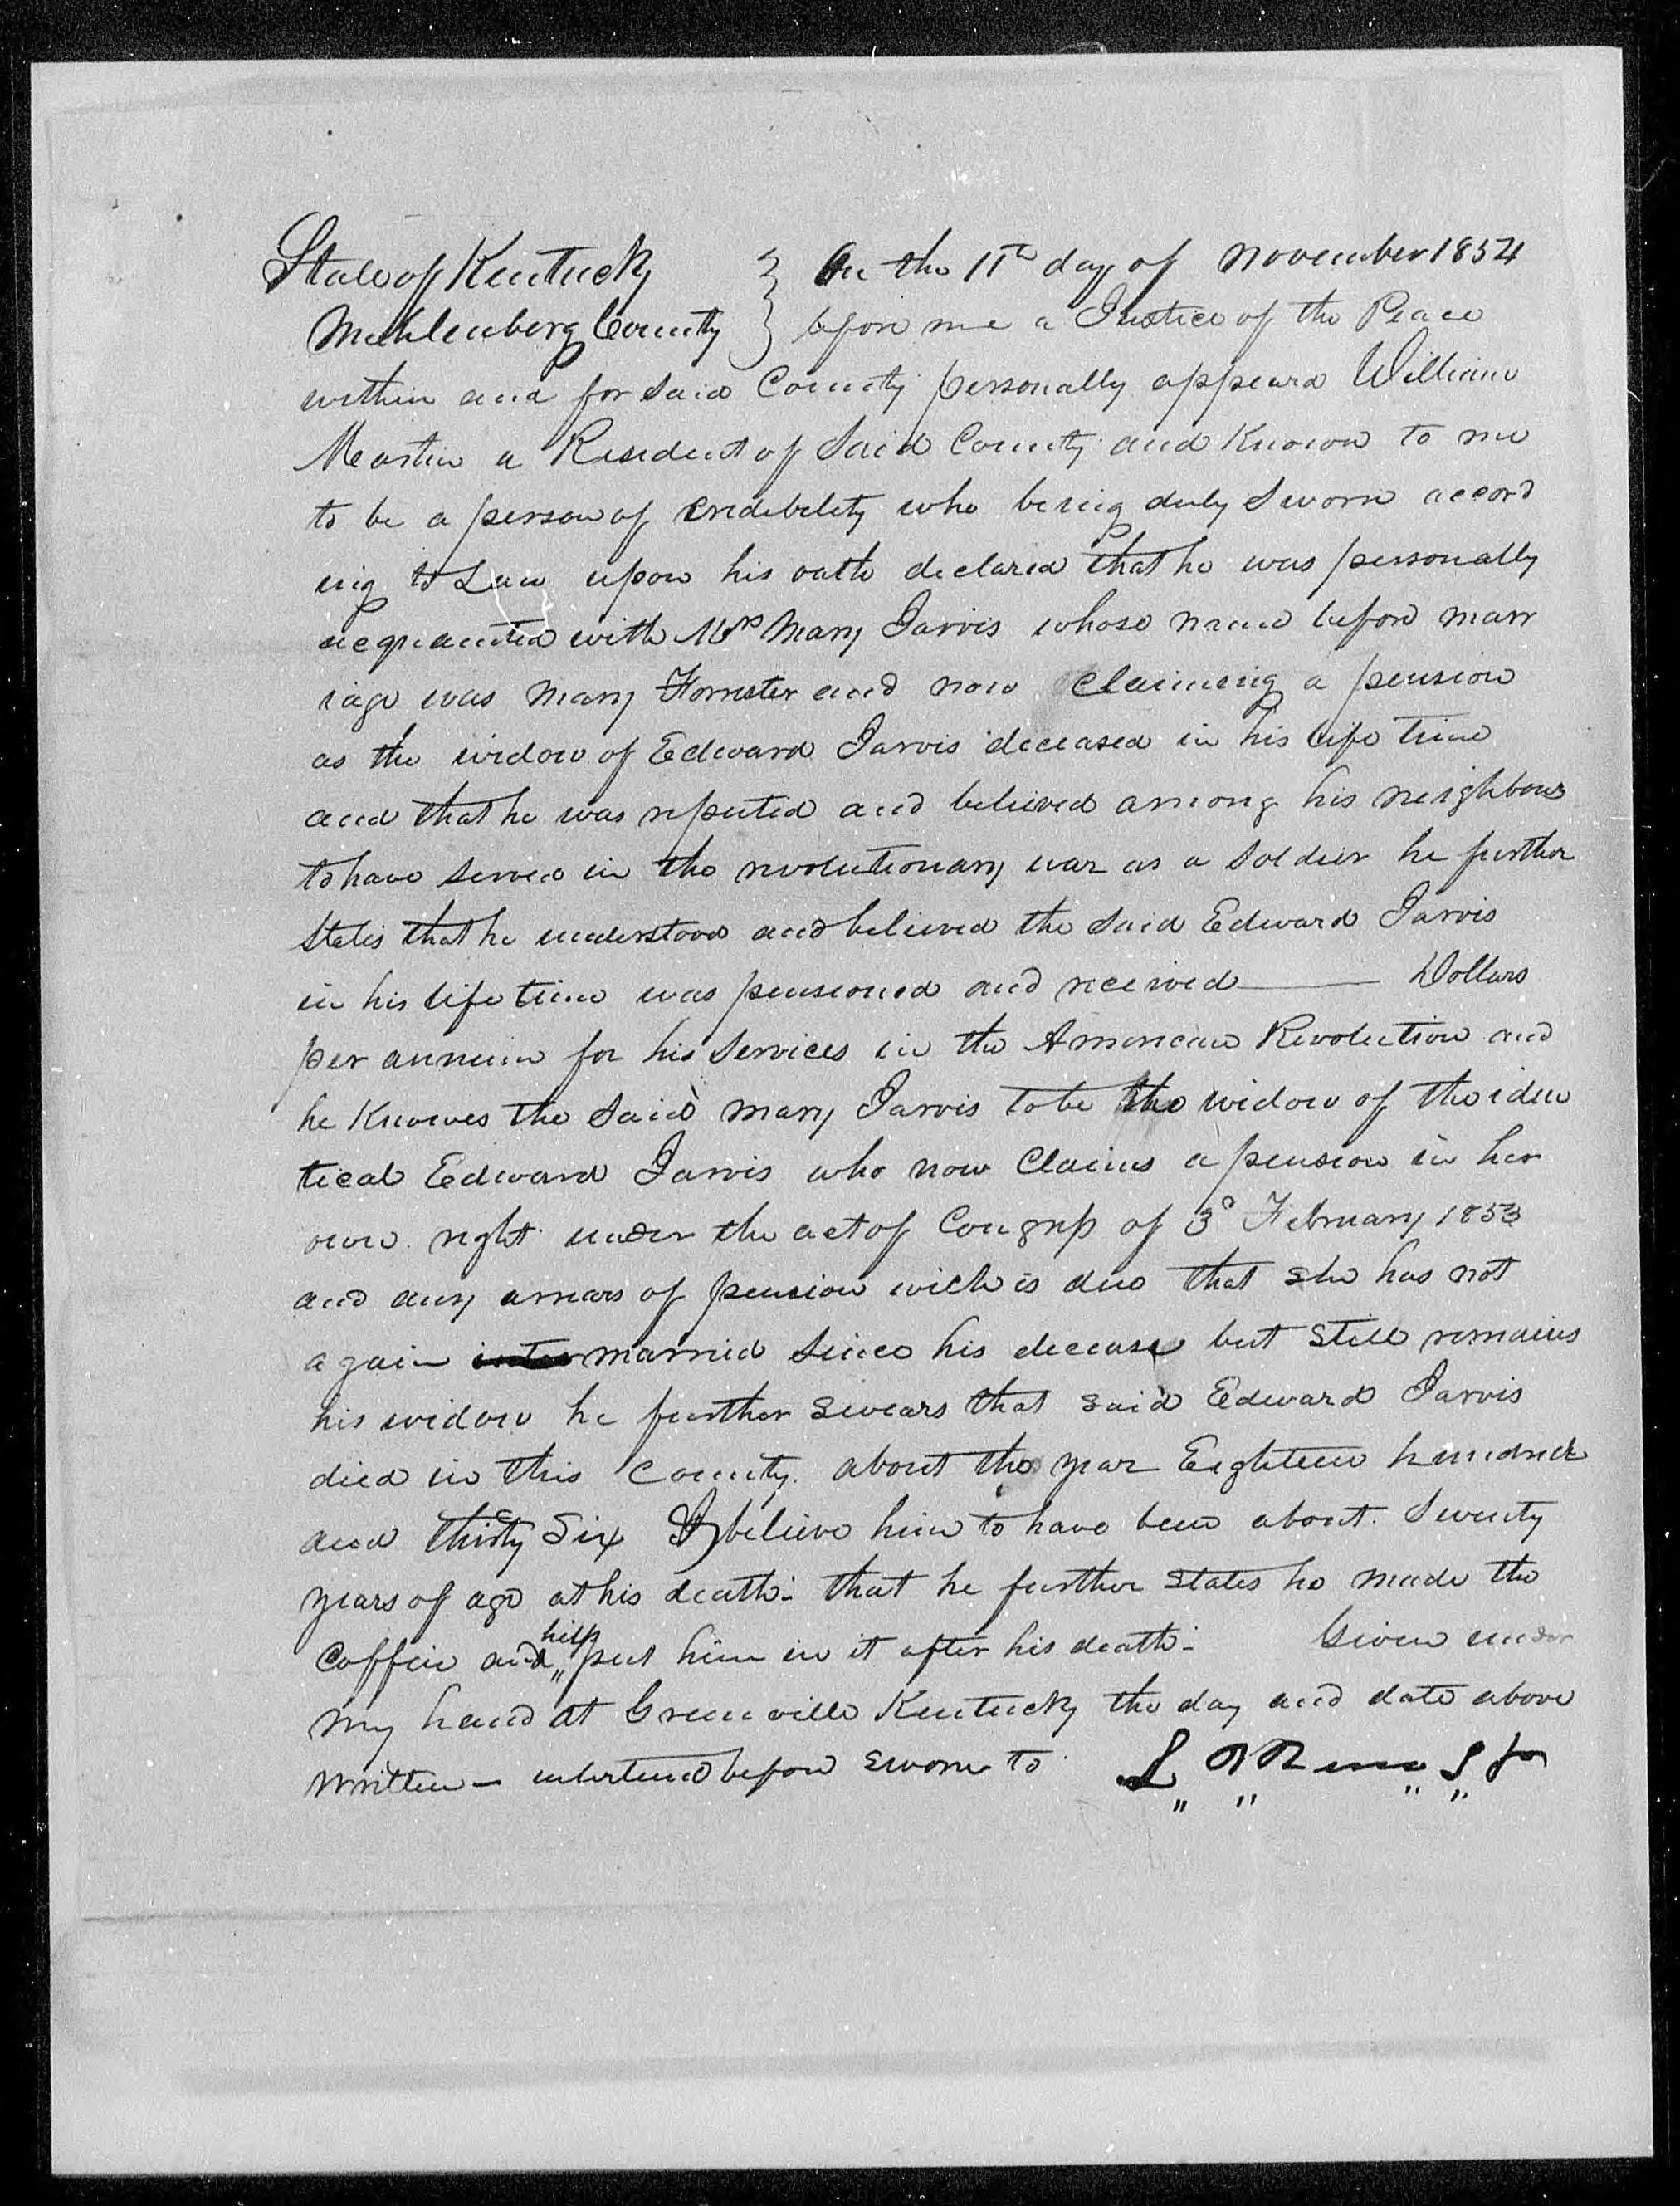 State of Kentucky } On the 11th day of November 1854
Muhlenberg County } before me a Justice of the Peace
within and for Said County personally appeard William
Martin a Resident of Said County and Known to me
to be a person of credibility who being duly Sworn accord
ing to Law upon his oath declared that he was personally
acquainted with Mrs Mary Jarvis whose name before marr
iage was Mary Forrester and now claiming a pension
as the widow of Edward Jarvis deceased in his life time
and that he was reputed and believed among his neighbours
to have served in the revolutionary war as a Soldier he further
States that he understood and believed the Said Edward Jarvis
in his life time was pensioned and received —— Dollars
per annum for his Services in the American Revolution and
he Knowes the Said Mary Jarvis to be the widow of the iden
tical Edward Jarvis who now Claims a pension in her
own right under the act of Congress of 3d February 1853
and any arrears of pension wich is due that she has not
again married Since his decease but still remains
his widow he further swears that said Edward Jarvis
died in this County about the year Eighteen hundred
and thirty Six I believe him to have been about Seventy
years of age at his death - that he further states he made the
coffin and help put him in it after his death - Given under
my hand at Greenville Kentucky the day and date above
written - interlined before sworn to